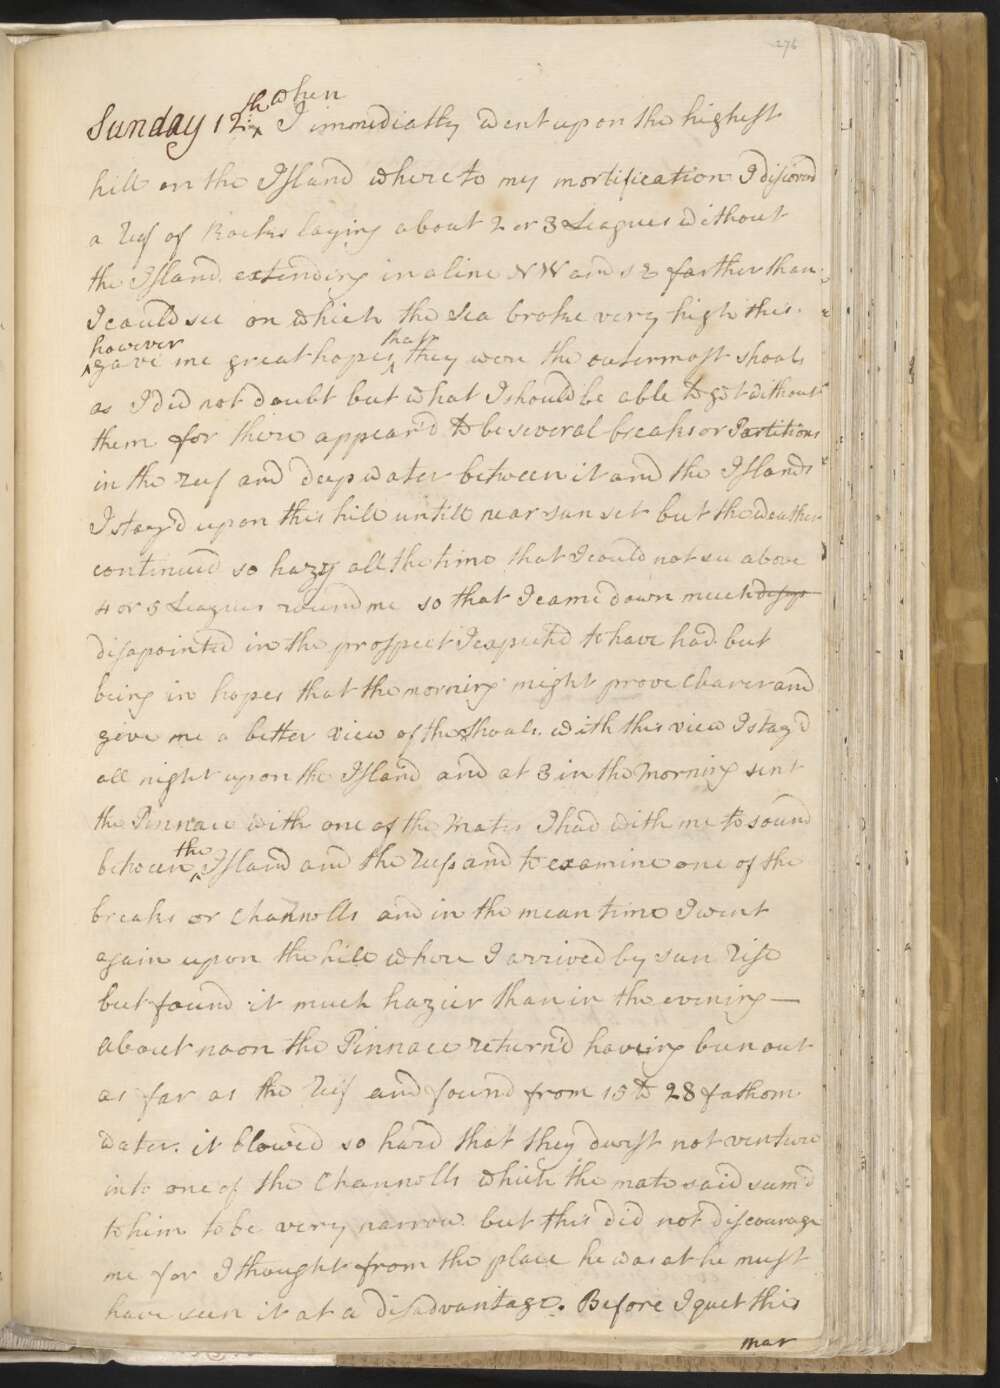 276
when
Sunday 12th I immediatly went upon the highest
hill on the Island where to my mortification I discoverd
a reef of Rocks laying about 2 or 3 Leagues without
the Island, extending in a line NW and SE farther than
I could see on which the Sea broke very high this.
however that
gave me great hopes they were the outermost shoals
as I did not doubt but what I should be able to get without
them for there appear'd to be several breaks or Partitions
in the reef and deep water between it and the Islands
I stay'd upon this hill untill near sun set but the weather
continued so hazy all the time that I could not see above
4 or 5 Leagues round me so that I came down much disap
disapointed in the prospect I expected to have had but
being in hopes that the morning might prove clearer and
give me a better view of the Shoals. with this view I stay'd
all night upon the Island and at 3 in the Morning sent
the Pinnace with one of the Mates I had with me to sound
the
between Island and the reefs and to examine one of the
breaks or Channells and in the mean time I went
again upon the hill where I arrived by sun rise
but found it much hazier than in the evening —
about noon the Pinnace return'd having been out
as far as the reef and found from 15 to 28 fathom
water. it blowed so hard that they durst not venture
into one of the Channells which the mate said seem'd
to him to be very narrow but this did not discourage
me for I thought from the place he was at he must
have seen it at a disadvantage. Before I quet this
mar